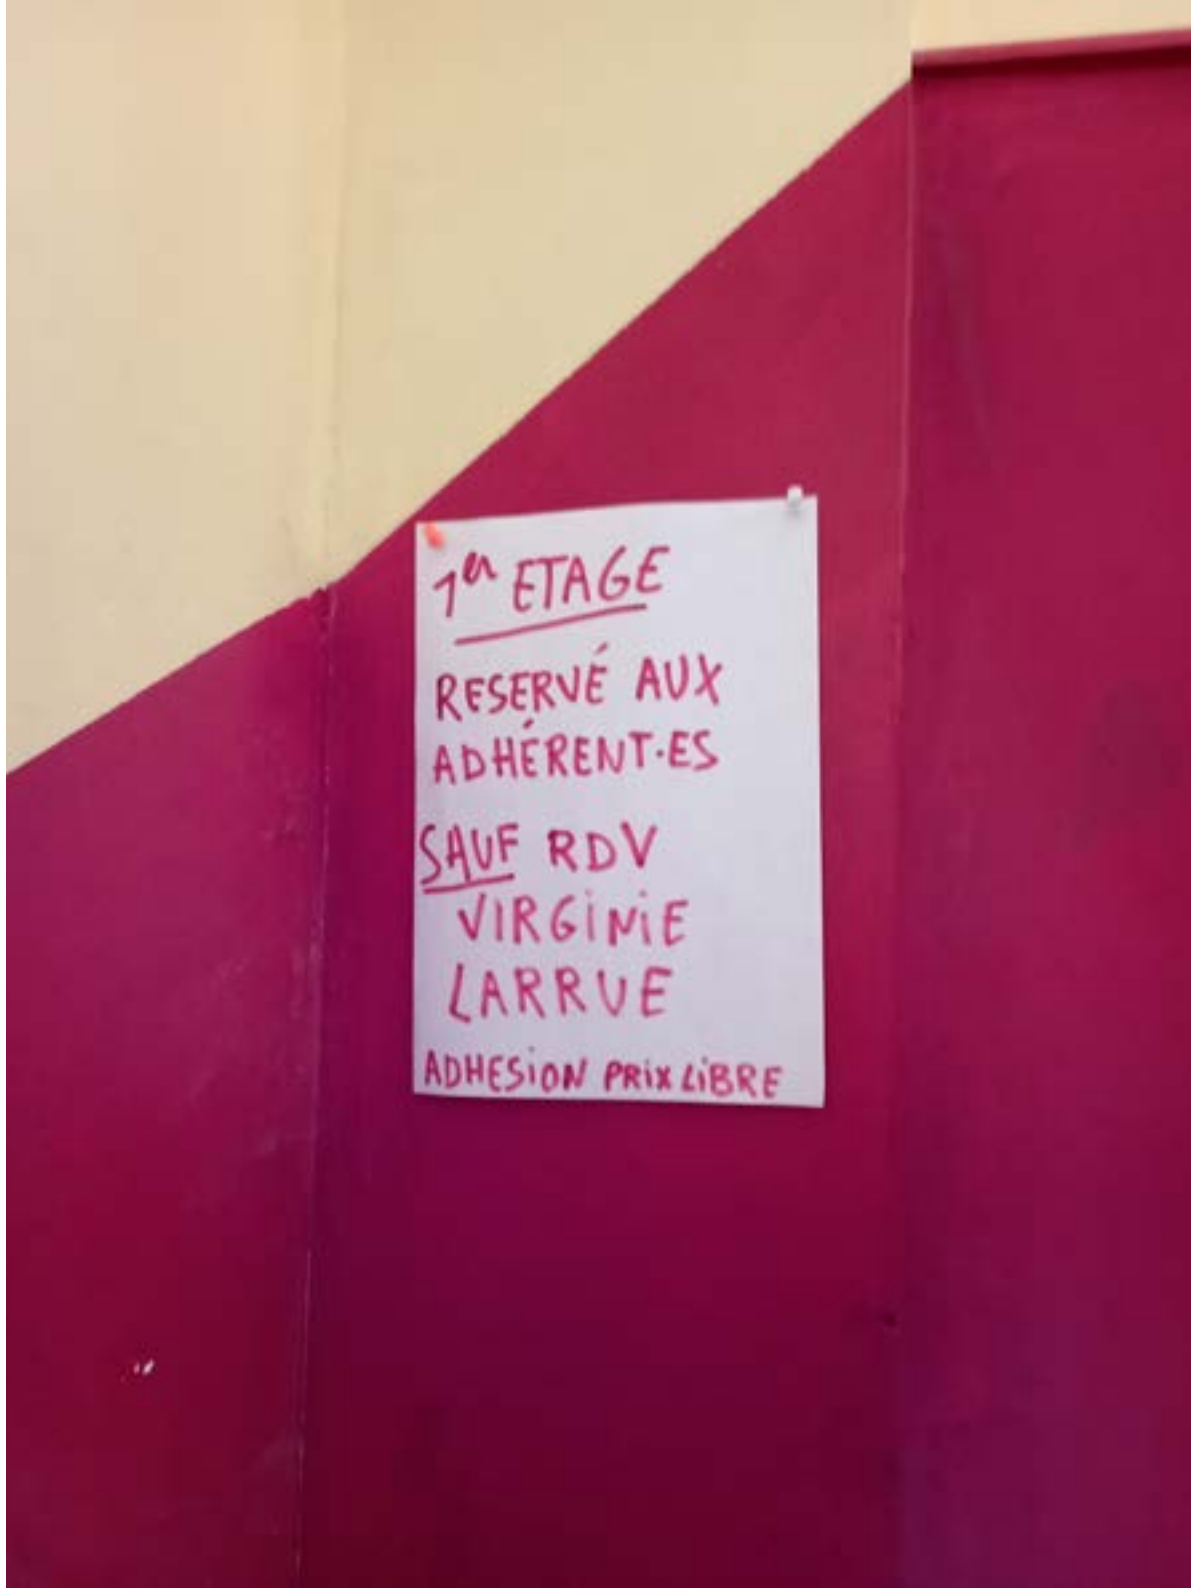 1er ETAGE
RESERVÉ AUX
ADHÉRENT·ES
SAUF RDV
VIRGINIE
LARRUE
ADHESION PRIX LIBRE